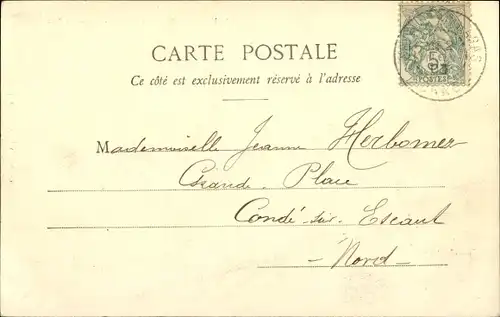 CARTE POSTALE
Ce côté est exclusivement réservé à l'adresse
Mademoiselle Jeanne Herbomez
Grande Place
Condé-sur-Escaut
- Nord -
5
POSTES